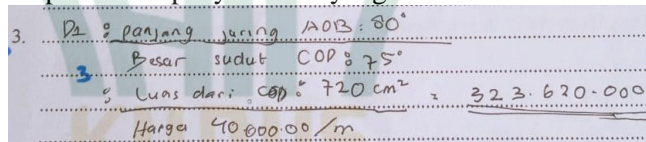 3. D1 : panjang juring AOB : 80°
Besar sudut COD : 75°
3
: Luas dari COD : 720 cm² = 323.620.000
Harga 40.000.00/m